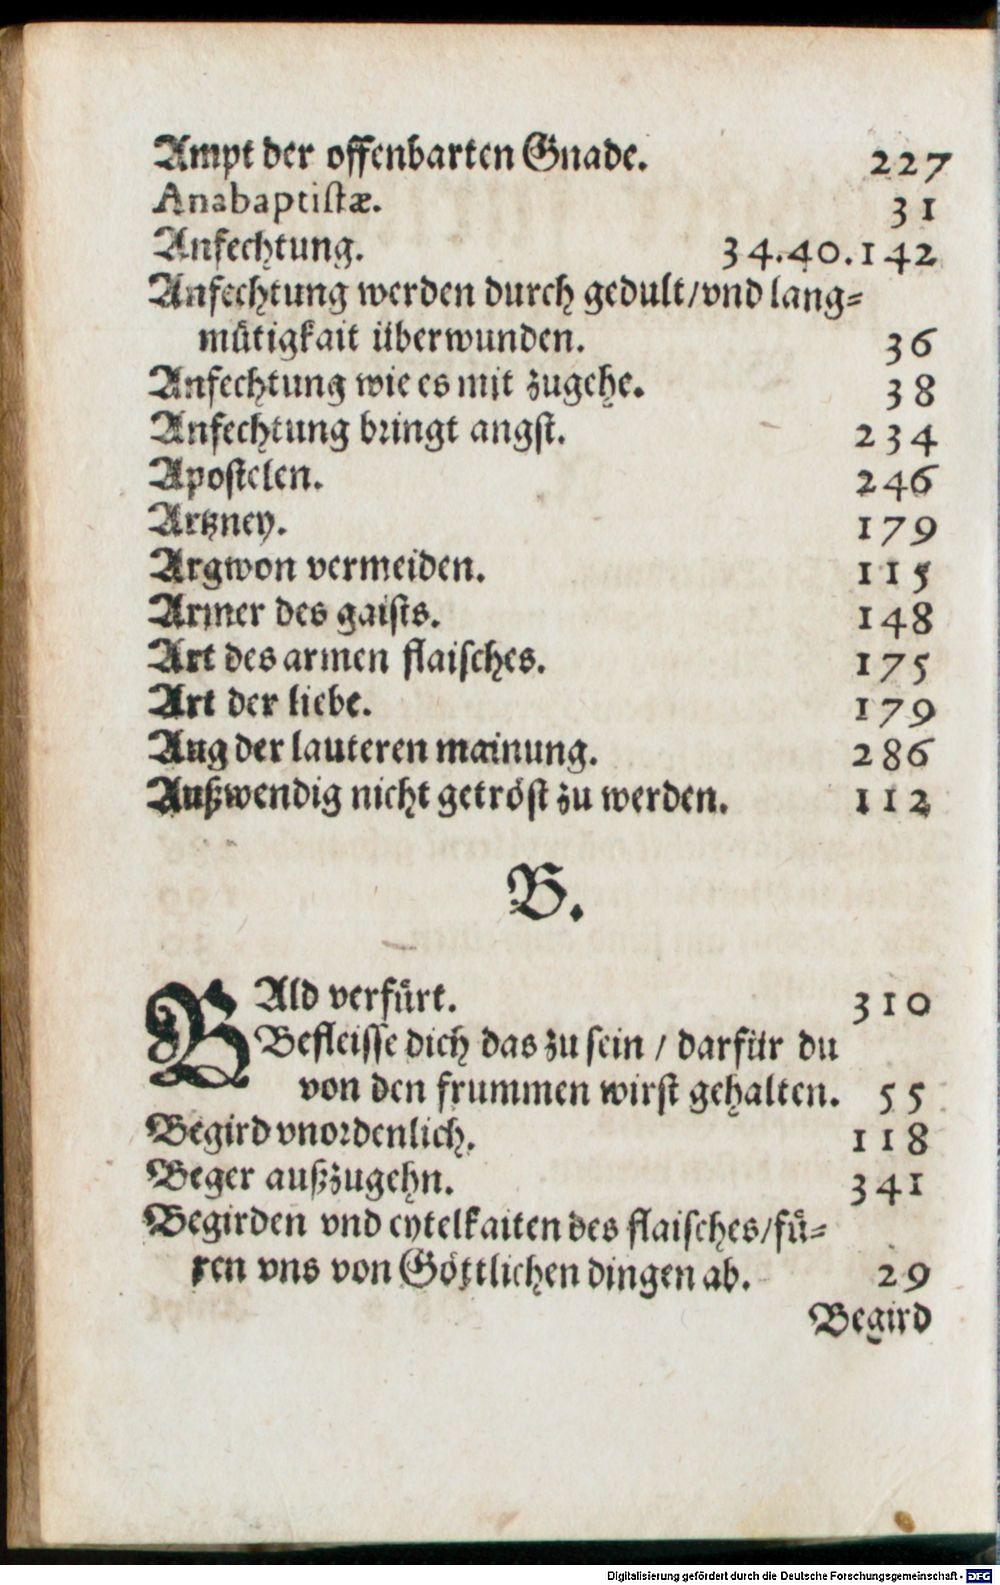 Ampt der offenbarten Gnade. 227
Anabaptistæ. 31
Anfechtung. 34.40.142
Anfechtung werden durch gedult/vnd lang=
mütigkait überwunden. 36
Anfechtung wie es mit zugehe. 38
Anfechtung bringt angst. 234
Apostelen. 246
Artzney. 179
Argwon vermeiden. 115
Armer des gaists. 148
Art des armen flaisches. 175
Art der liebe. 179
Aug der lauteren mainung. 286
Außwendig nicht getröst zu werden. 112
B.
BAld verfürt. 310
Befleisse dich das zu sein / darfür du
von den frummen wirst gehalten. 55
Begird vnordenlich. 118
Beger außzugehn. 341
Begirden vnd eytelkaiten des flaisches/fü=
ren vns von Göttlichen dingen ab. 29
Begird
Digitalisierung gefördert durch die Deutsche Forschungsgemeinschaft - DFG